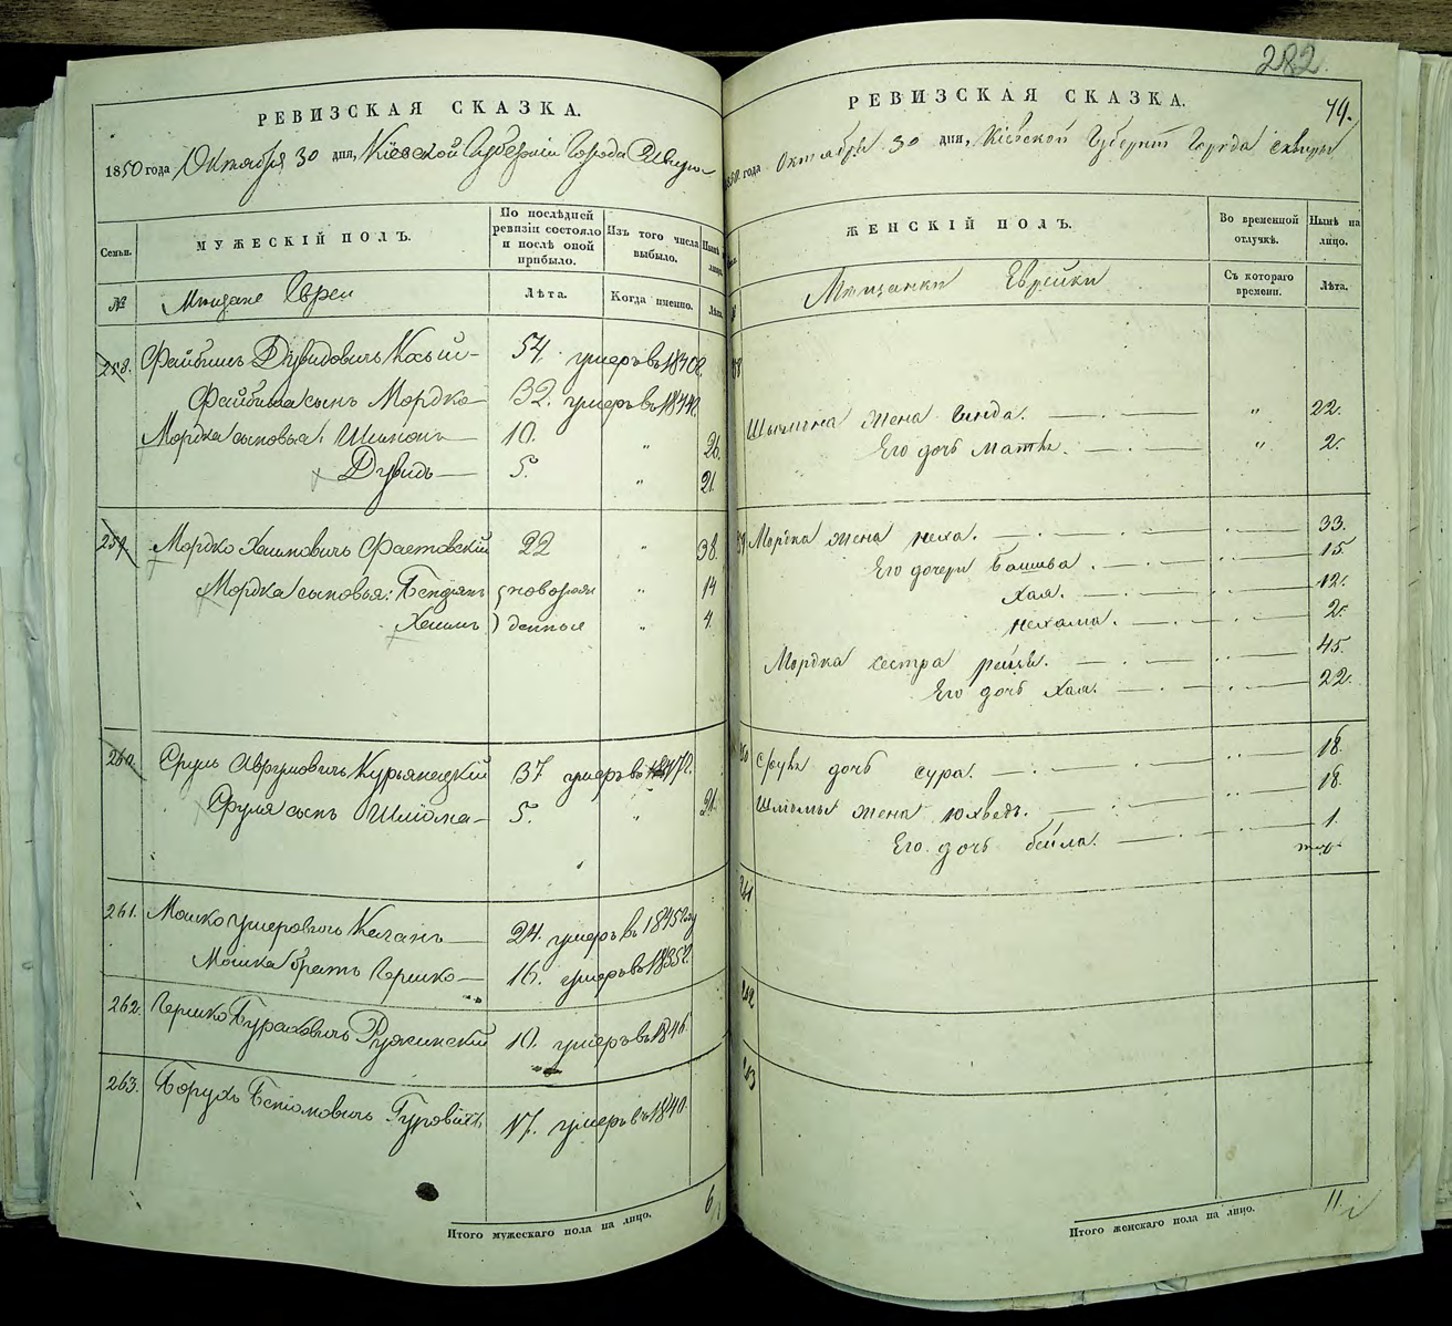 РЕВИЗСКАЯ СКАЗКА.
1850 года Октября 30 дня, Кіевской Губерніи Города Сквиры
Семьи.
МУЖЕСКІЙ ПОЛЪ.
По послѣдней ревизіи состояло и послѣ оной прибыло.
Изъ того числа выбыло.
Нынѣ лицо.
№ Мѣщане Евреи Лѣта. Когда именно. Лѣта.
258. Файбишъ Дувидовичъ 54. умеръ въ 1840г.
Файбиша сынъ Мордко 32. умеръ въ 1844г.
Мордка сыновья: Шимонъ 10. " 26.
Дувидъ 5. " 21.
259. Мордко Хаимовичъ Фастовскій 22 " 38.
Мордка сыновья: новорож " 14
Хаимъ денные " 4.
260. Сруль Аврумовичъ Курьянецкій 37. умеръ въ 1847г.
Сруля сынъ Шліома 5. " 21.
261. Мошко Умеровичъ Каганъ 24. умеръ въ 1845 году
Мошка братъ Гершко 16. умеръ въ 1835г.
262. Гершко Бураховичъ Ружинскій 10. умеръ въ 1846.
263. Борухъ Гуровичъ 17. умеръ въ 1840.
Итого мужескаго пола на лицо. 6
282.
РЕВИЗСКАЯ СКАЗКА. 49.
1850 года Октября 30 дня, Кіевской Губерніи Города Сквиры
ЖЕНСКІЙ ПОЛЪ.
Во временной отлучкѣ.
Нынѣ на лицо.
№ Мѣщанки Еврейки Съ котораго времени. Лѣта.
Шимона жена Гинда. " 22.
Его дочь Матля. " 2.
Мордка жена Неха. 33.
Его дочери Башива. 15.
Хая. 12.
Нехама. 2.
Мордка сестра Рейзя. 45.
Его дочь Хая. 22.
260 Сруля дочь Сура. 18.
Шліомы жена Юхведъ. 18.
Его дочь Бейла. 1.
261
262
263
Итого женскаго пола на лицо. 11.